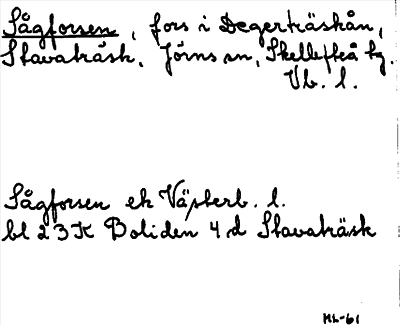 Sågforsen, fors i Degerträskån,
Stavaträsk. Jörns sn, Skellefteå tg.
Vb. l.
Sågforsen ek Västerb. l.
bl 23K Boliden 4 d Stavaträsk
ML-61